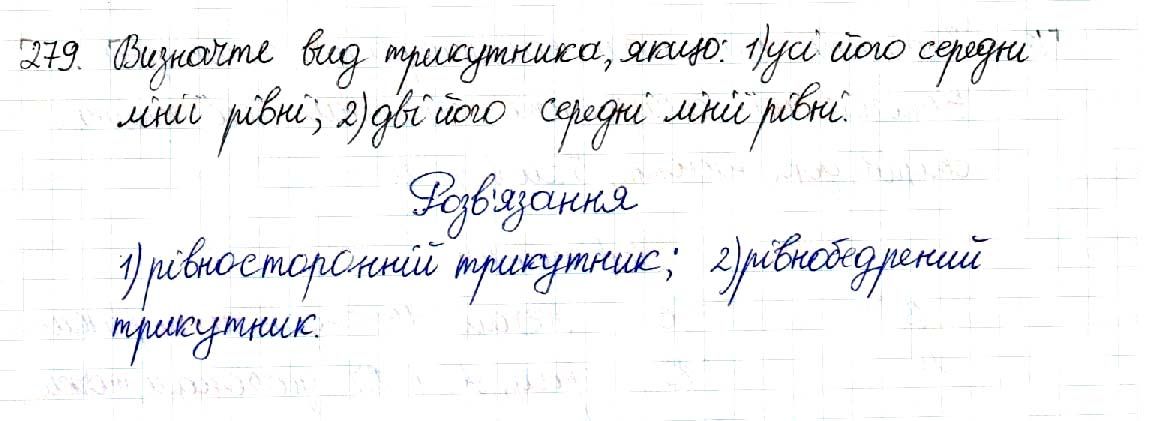 279. Визначте вид трикутника, якщо: 1) усі його середні
лінії рівні; 2) дві його середні лінії рівні.
Розв'язання
1) рівносторонній трикутник; 2) рівнобедрений
трикутник.